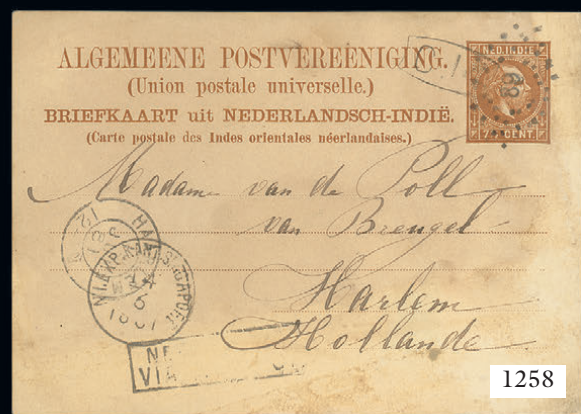 ALGEMEENE POSTVEREENIGING.
(Union postale universelle.)
BRIEFKAART uit NEDERLANDSCH-INDIË.
(Carte postale des Indes orientales néerlandaises.)
NED. INDIE
7½ CENT
Madame van de Poll
van Brengel
Harlem
Hollande
VIA
1258